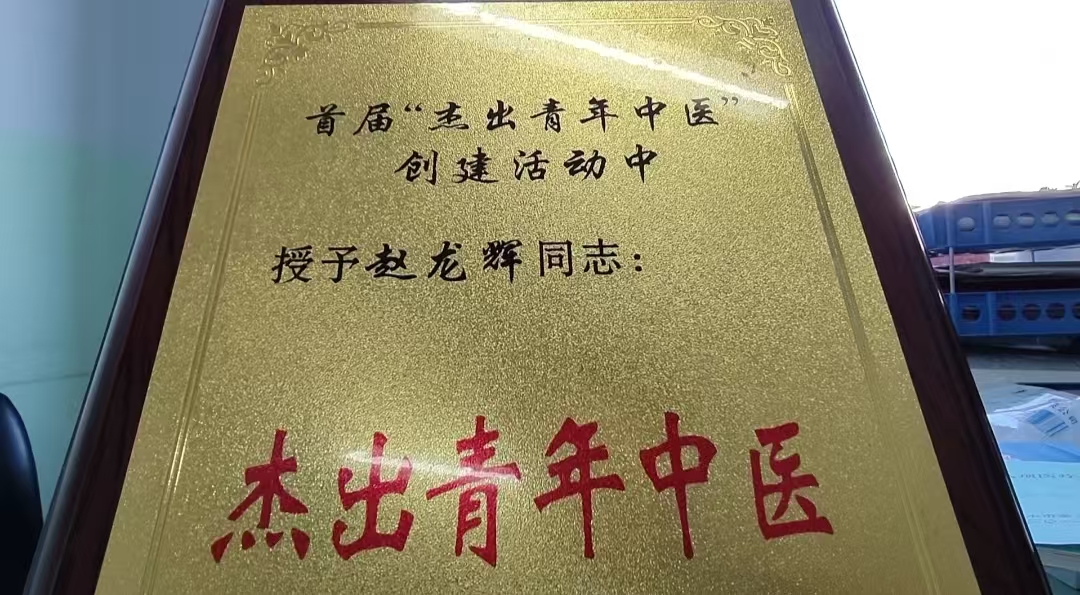 首届“杰出青年中医”
创建活动中
授予赵龙辉同志：
杰出青年中医